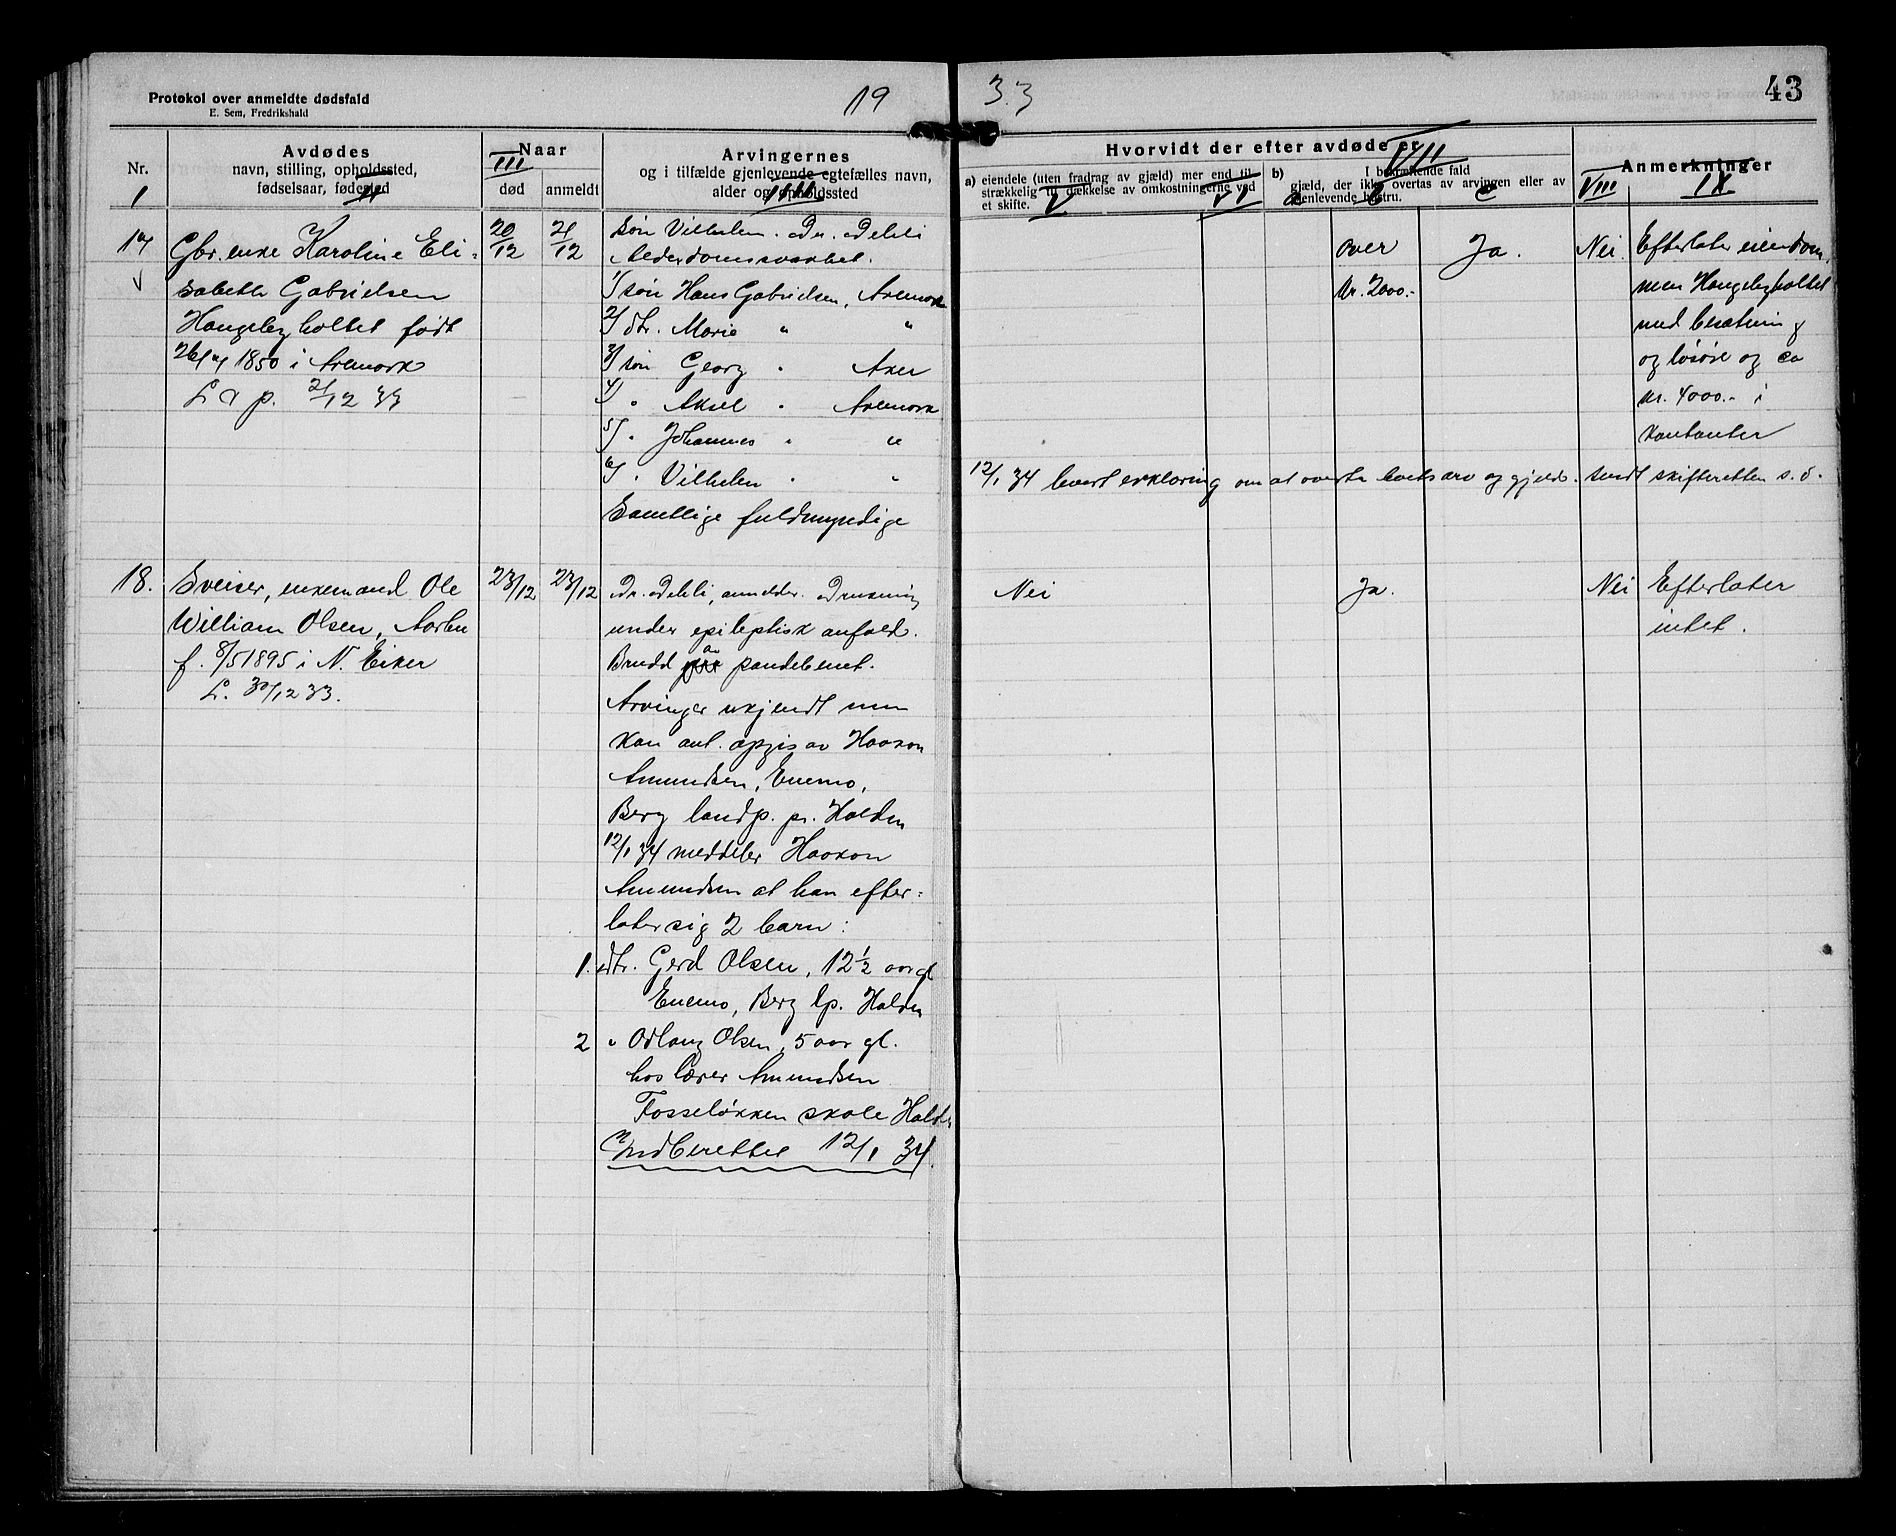 Protokol over anmeldte dødsfald
E. Sem, Fredrikshald
19
33
43
Nr.
1
Avdødes
navn, stilling, opholdssted,
fødselsaar, fødested
II
Naar
III
død
anmeldt
Arvingernes
og i tilfælde gjenlevende egtefælles navn,
alder og opholdssted
IIII
Hvorvidt der efter avdøde er
VII
a) eiendele (uten fradrag av gjæld) mer end til-
strækkelig til dækkelse av omkostningerne ved
et skifte.
V
VI
b)
I bekræftende fald
gjæld, der ikke overtas av arvingen eller av
gjenlevende hustru.
a
b
c
VIII
Anmerkninger
IX
17
Gbr. enke Karoline Eli-
sabeth Gabrielsen
Haugebyholtet født
26/4 1850 i Aremark
L & p. 21/12 33
20/12
21/12
søn Vilhelm. Dr. Debli
Alderdomssvakhet.
1/ søn Hans Gabrielsen, Aremark
2/ dtr. Marie " "
3/ søn Georg " Aker
4/ " Aksel " Aremark
5/ " Johannes " "
6/ " Vilhelm " "
Samtlige fuldmyndige
over
kr. 2000.-
Ja.
Nei.
Efterlater eiendom-
men Haugebyholtet
med besætning
og løsøre og ca
kr. 4000.- i
kontanter
12/1 34 levert erklæring om at overta boets arv og gjeld. sendt skifteretten s. d.
18.
Sveiser, enkemand Ole
William Olsen, Aarbu
f. 8/5 1895 i N. Eiker
L. 30/12 33.
23/12
23/12
Dr. Debli, anmelder. Drukning
under epileptisk anfald.
Brudd av pandebenet.
Arvinger ukjendt men
kan ant. opgis av Haakon
Amundsen, Enemo,
Berg landp. pr. Halden
12/1 34 meddeler Haakon
Amundsen at han efter-
later sig 2 barn:
1. dtr. Gerd Olsen, 12 1/2 aar gl
Enemo, Berg lp. Halden
2 " Odlaug Olsen, 5 aar gl.
hos lærer Amundsen
Fosseløkken skole Halden
Indberettet 12/1 34.
Nei
Ja.
Nei
Efterlater
intet.